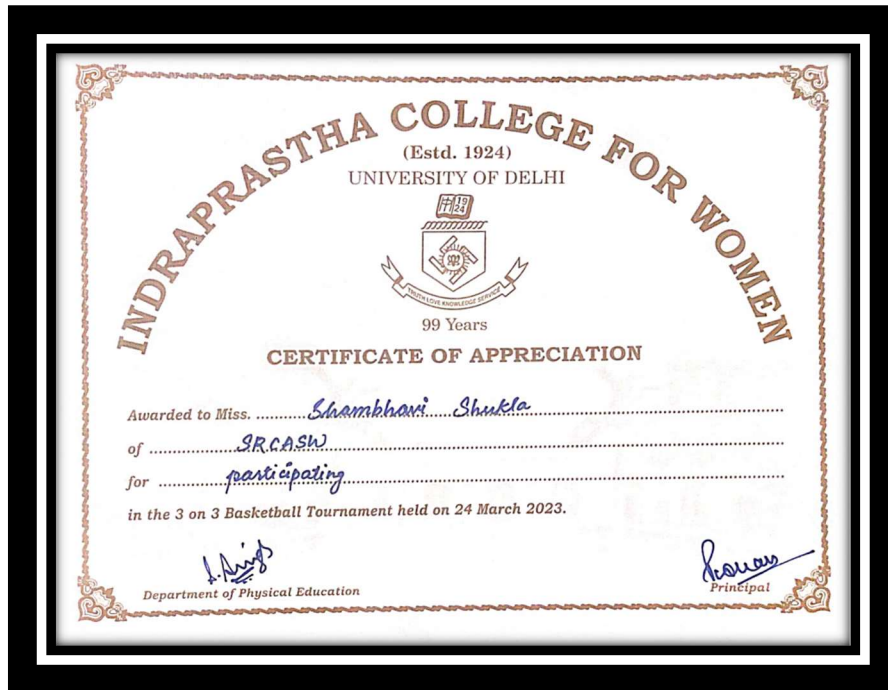 INDRAPRASTHA COLLEGE FOR WOMEN
(Estd. 1924)
UNIVERSITY OF DELHI
19
24
TRUTH LOVE KNOWLEDGE SERVICE
99 Years
CERTIFICATE OF APPRECIATION
Awarded to Miss. .......... Shambhavi Shukla
of .......... SRCASW
for .......... participating
in the 3 on 3 Basketball Tournament held on 24 March 2023.
S. Singh
Department of Physical Education
Principal